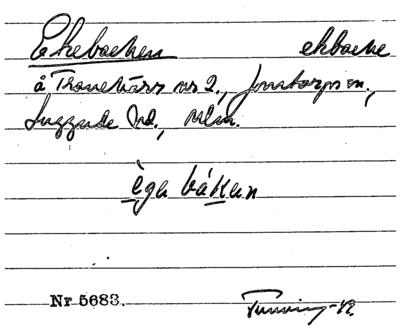 Ekebacken ekbacke
å Tranekärr nr 2, Jonstorps sn.,
Luggude hd., Mlm.
ega bákan
Nr 5683.